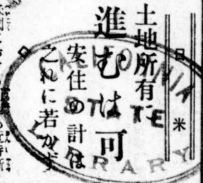 日米
土地所有に
進むは可
安住の計は
之れに若かず
CALIFORNIA
STATE
LIBRARY